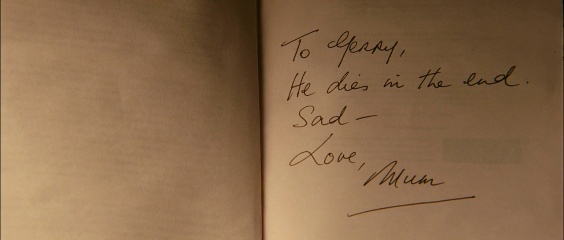 To Gerry,
He dies in the end.
Sad -
Love,
Mum